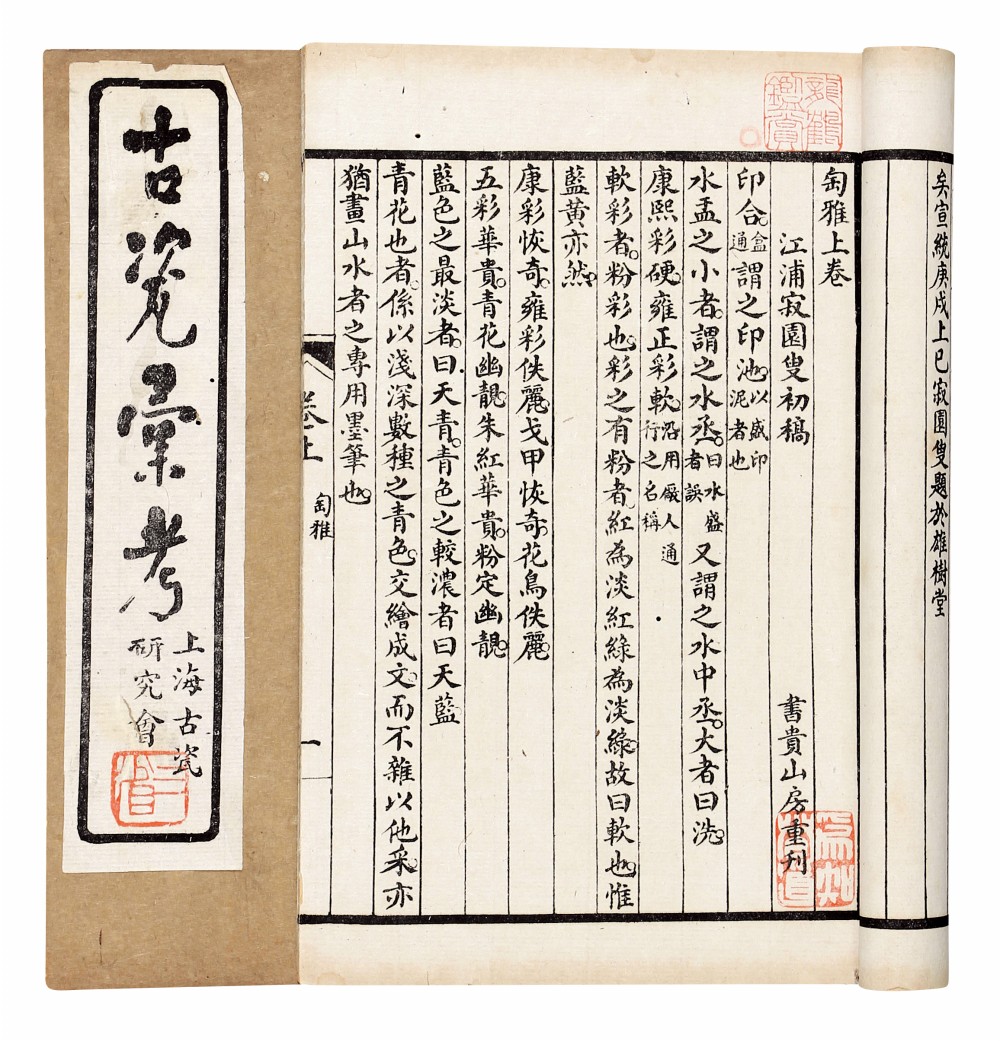 矣宣統庚戌上巳寂園叟題於雄樹堂
匋雅上卷
江浦寂園叟初稿　書貴山房重刊
印合。盒通謂之印池。以盛印泥者也
水盂之小者。謂之水丞。曰水盛者誤又謂之水中丞。大者曰洗。
康熙彩硬。雍正彩軟。沿用廠人通行之名稱
軟彩者。粉彩也。彩之有粉者。紅為淡紅綠為淡綠。故曰軟也。惟
藍黃亦然。
康彩恢奇。雍彩佚麗。戈甲恢奇。花鳥佚麗。
五彩華貴。青花幽靚。朱紅華貴。粉定幽靚。
藍色之最淡者。曰天青。青色之較濃者曰天藍
青花也者。係以淺深數種之青色。交繪成文。而不雜以他采。亦
猶畫山水者之專用墨筆也。
卷上
匋雅
一
古瓷彙考
上海古瓷
研究會